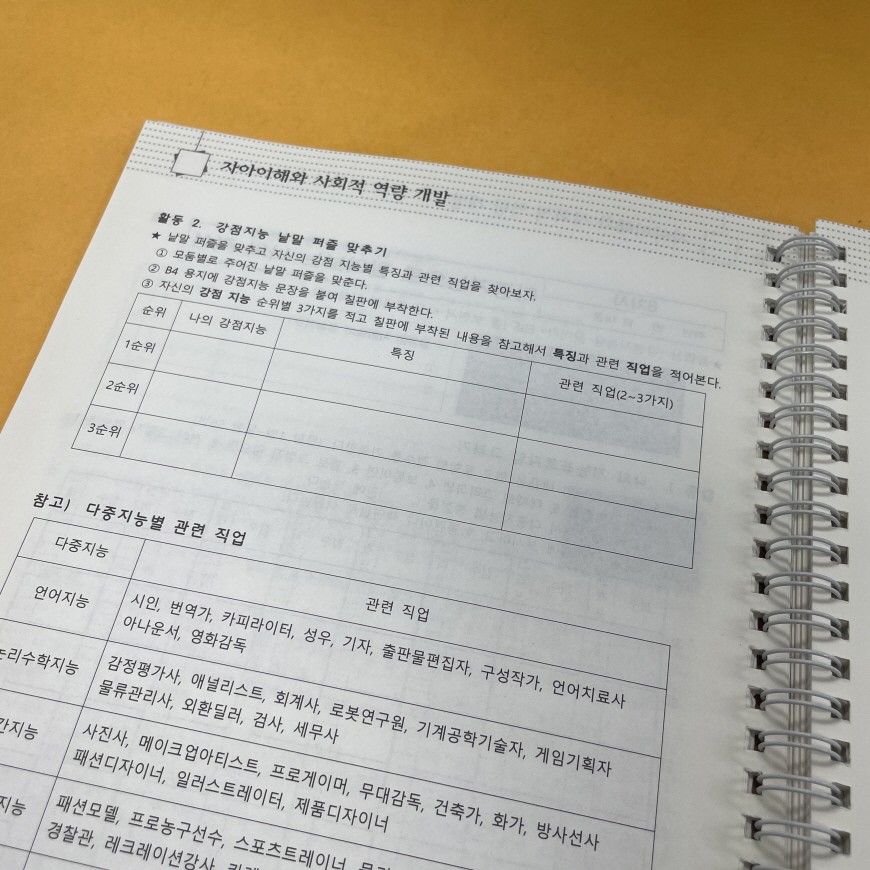 자아이해와 사회적 역량 개발
활동 2. 강점지능 낱말 퍼즐 맞추기
★ 낱말 퍼즐을 맞추고 자신의 강점 지능별 특징과 관련 직업을 찾아보자.
① 모둠별로 주어진 낱말 퍼즐을 맞춘다.
② B4 용지에 강점지능 문장을 붙여 칠판에 부착한다.
③ 자신의 강점 지능 순위별 3가지를 적고 칠판에 부착된 내용을 참고해서 특징과 관련 직업을 적어본다.
순위 나의 강점지능 특징 관련 직업(2~3가지)
1순위
2순위
3순위
참고) 다중지능별 관련 직업
다중지능 관련 직업
언어지능 시인, 번역가, 카피라이터, 성우, 기자, 출판물편집자, 구성작가, 언어치료사
아나운서, 영화감독
논리수학지능 감정평가사, 애널리스트, 회계사, 로봇연구원, 기계공학기술자, 게임기획자
물류관리사, 외환딜러, 검사, 세무사
간지능 사진사, 메이크업아티스트, 프로게이머, 무대감독, 건축가, 화가, 방사선사
패션디자이너, 일러스트레이터, 제품디자이너
지능 패션모델, 프로농구선수, 스포츠트레이너,
경찰관, 레크레이션강사,